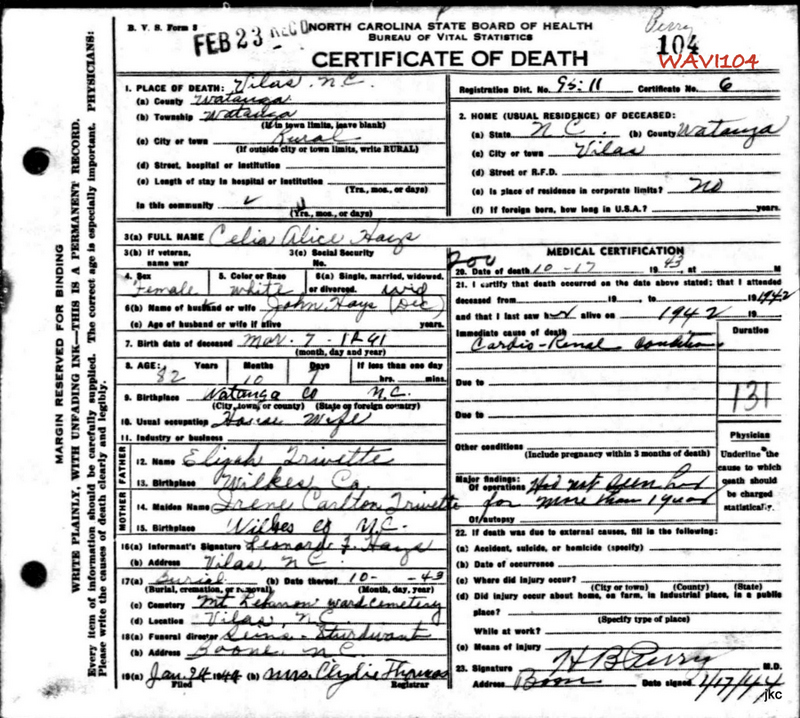 B. V. S. Form 8
FEB 23 REC'D
NORTH CAROLINA STATE BOARD OF HEALTH
BUREAU OF VITAL STATISTICS
CERTIFICATE OF DEATH
Perry
104
WAVI104
MARGIN RESERVED FOR BINDING
WRITE PLAINLY, WITH UNFADING INK—THIS IS A PERMANENT RECORD.
Every item of information should be carefully supplied. The correct age is especially important. PHYSICIANS:
Please write the causes of death clearly and legibly.
Registration Dist. No. 95-11 Certificate No. 6
1. PLACE OF DEATH: Vilas, N.C.
(a) County Watauga
(b) Township Watauga
(If in town limits, leave blank)
(c) City or town Rural
(If outside city or town limits, write RURAL)
(d) Street, hospital or institution
(e) Length of stay in hospital or institution
(Yrs., mos., or days)
In this community
(Yrs., mos., or days)
2. HOME (USUAL RESIDENCE) OF DECEASED:
(a) State N.C. (b) County Watauga
(c) City or town Vilas
(d) Street or R.F.D.
(e) Is place of residence in corporate limits? No
(f) If foreign born, how long in U.S.A.? years.
3(a) FULL NAME Celia Alice Hays
3(b) If veteran, name war
3(c) Social Security No.
4. Sex Female
5. Color or Race White
6(a) Single, married, widowed, or divorced. wid
6(b) Name of husband or wife John Hays (Dec)
(c) Age of husband or wife if alive years.
7. Birth date of deceased Mar. 7 -
(month, day and year)
8. AGE: Years 82 Months 10 Days
If less than one day hrs. min.
9. Birthplace Watauga Co N.C.
(City, town, or county) (State or foreign country)
10. Usual occupation House Wife
11. Industry or business
FATHER
12. Name Elijah Trivette
13. Birthplace Wilkes Co.
MOTHER
14. Maiden Name Irene Carlton Trivette
15. Birthplace Wilkes Co N.C.
16(a) Informant's Signature Leonard F. Hays
(b) Address Vilas N.C.
17(a) Burial (b) Date thereof 10- -43
(Burial, cremation, or removal) (Month, day, year)
(c) Cemetery Mt Lebanon ward cemetery
(d) Location Vilas, N.C.
18(a) Funeral director Reins-Sturdivant
(b) Address Boone, N.C.
19(a) Jan. 24 1944 (b) Mrs. Clydie
Filed Registrar
MEDICAL CERTIFICATION
200
20. Date of death 10-17 1943, at M
21. I certify that death occurred on the date above stated; that I attended
deceased from 19 , to 1942
and that I last saw her alive on 1942 19
Immediate cause of death
Duration
Cardio-Renal condition
Due to
131
Due to
Other conditions
(Include pregnancy within 3 months of death)
Physician
Underline the cause to which death should be charged statistically.
Major findings:
Of operations Had not seen her
for more than 1 year
Of autopsy
22. If death was due to external causes, fill in the following:
(a) Accident, suicide, or homicide (specify)
(b) Date of occurrence
(c) Where did injury occur?
(City or town) (County) (State)
(d) Did injury occur about home, on farm, in industrial place, in a public
place?
(Specify type of place)
While at work?
(e) Means of injury
23. Signature H B Perry M.D.
Address Boone Date signed 1/17/44
jkc